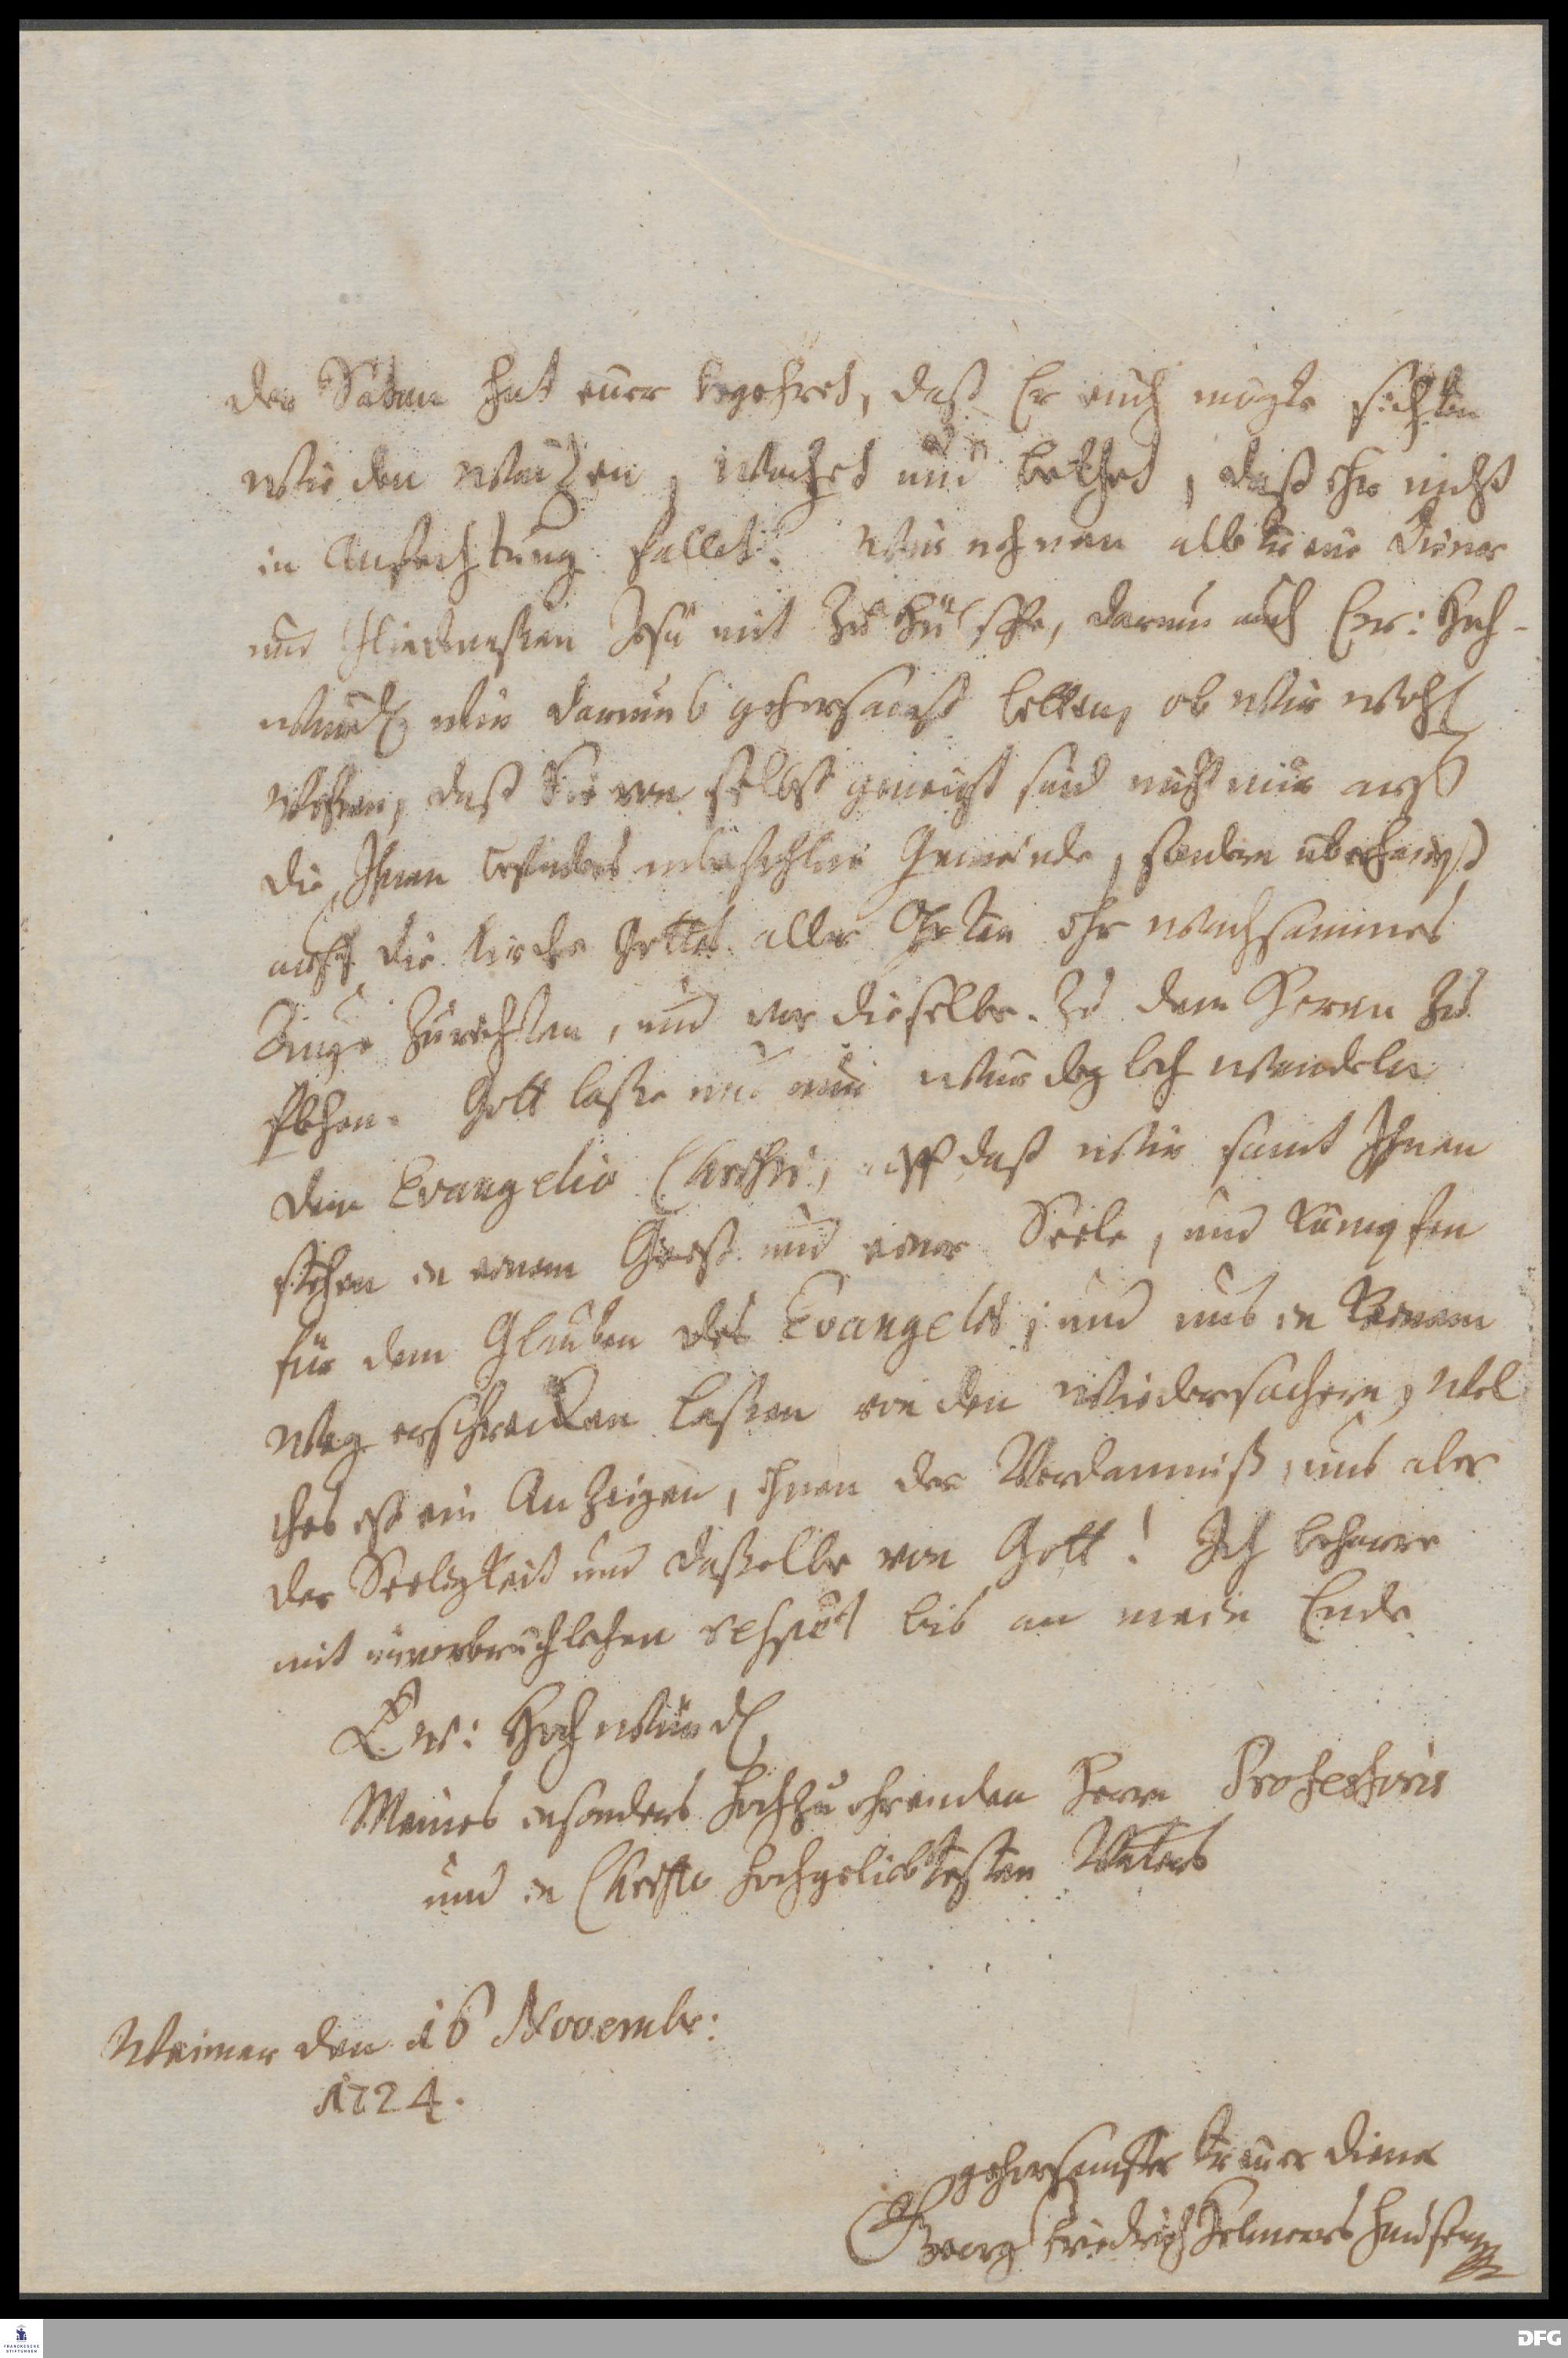 der Satan hat euer begehret, daß Er euch mögte sichten
wie den Waitzen, wachet und bethet, daß ihr nicht
in Anfechtung fallet. Wir nehmen alle treue Diener
und Gliedmaßen Jesu mit zu Hülffe, darum auch Ew: Hoch-
würd. wir darumb gehorsamst bitten, ob wir wohl
wißen, daß Sie von selbst geneigt sind nicht nur auff
die Ihnen besonders anbefohlene Gemeinde, sondern überhaupt
auff die Kirche Gottes aller Orten ihr wachsammes
Auge zurichten, und vor dieselbe zu dem Herrn zu
flehen. Gott laße uns nur würdiglich wandeln
dem Evangelio Christi, auff daß wir samt Ihnen
stehen in einem Geist und einer Seele, und kämpfen
für dem Glauben des Evangelii, und uns in keinem
Weg erschrecken laßen von den Wiedersachern, wel
ches ist ein Anzeigen, ihnen der Verdamniß, uns aber
der Seeligkeit und daßelbe von Gott! Ich beharre
mit unverbrüchlichen respect bis an mein Ende
Ew: Hochwürd.
Meines insonders hochzuehrenden Herrn Professoris
und in Christo hochgeliebtesten Vaters
Weimar den 16 Novembr:
1724.
gehorsamster treuer Diener
Georg Friedrich Helmershausen
FRANCKESCHE
STIFTUNGEN
DFG